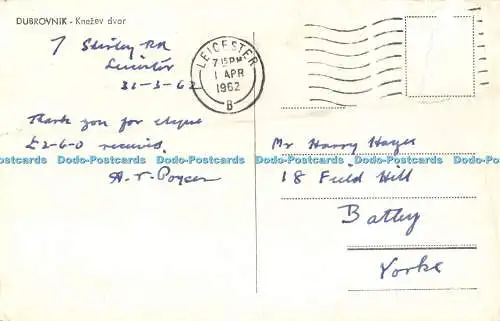 DUBROVNIK - Knežev dvor
7 Shirley Rd
Leicester
31-3-62
LEICESTER
7 15 PM
1 APR
1962
B
Thank you for cheque
£2-6-0 received.
Dodo-Postcards Dodo-Postcards Dodo-Postcards Dodo-Postcards Dodo-Postcards Dodo-Postcards
Mr Harry Hayes
18 Field Hill
Batley
Yorks